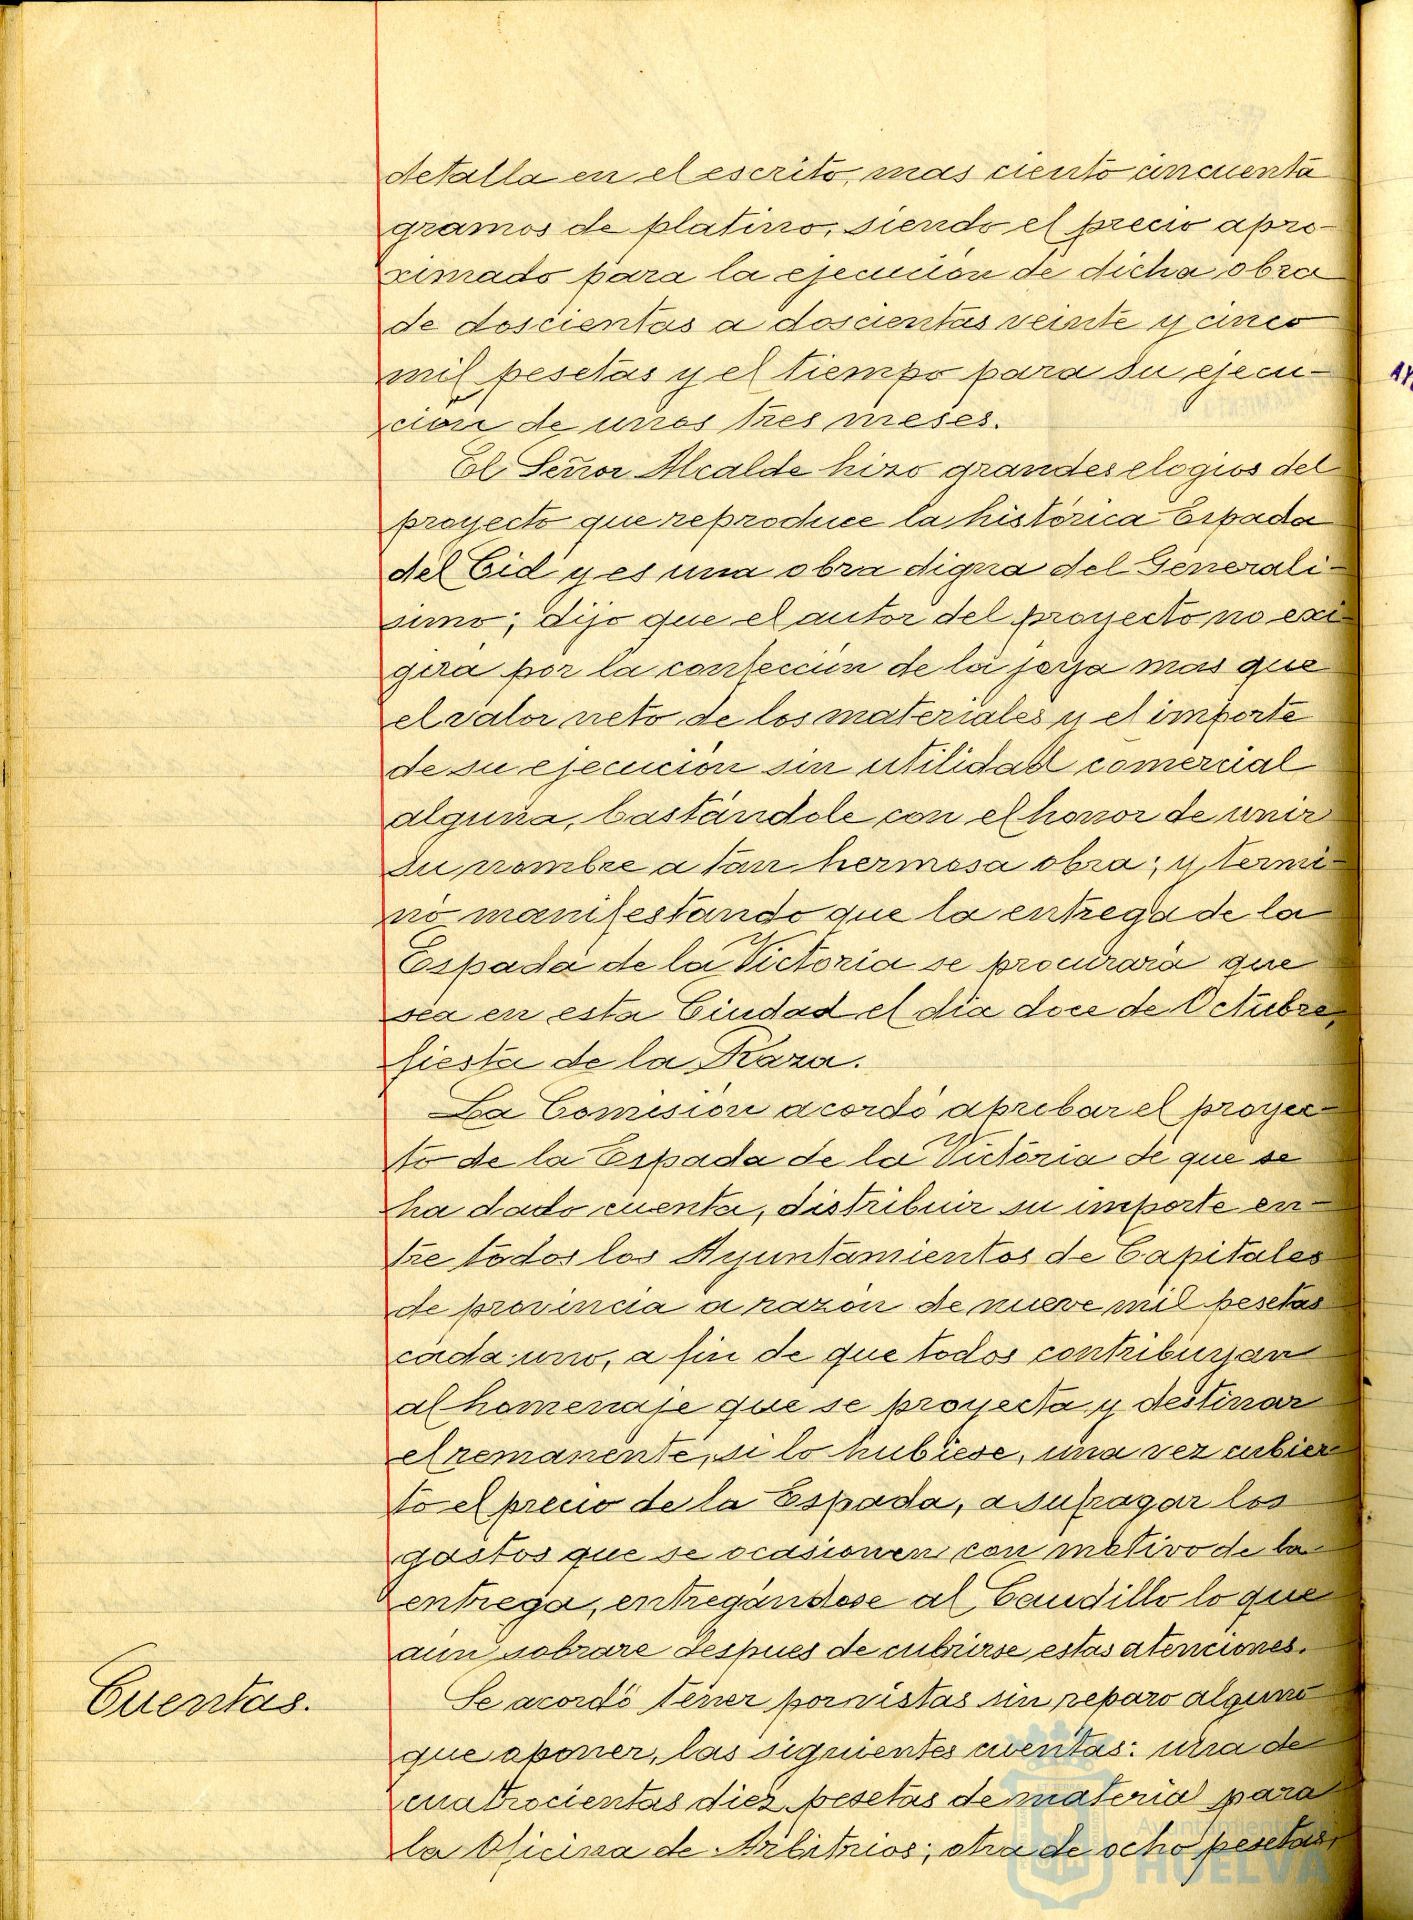 detalla en el escrito, mas ciento cincuenta
gramos de platino, siendo el precio apro-
ximado para la ejecución de dicha obra
de doscientas a doscientas veinte y cinco
mil pesetas y el tiempo para su ejecu-
ción de unos tres meses.
El Señor Alcalde hizo grandes elogios del
proyecto que reproduce la histórica Espada
del Cid y es una obra digna del Generali-
simo; dijo que el autor del proyecto no exi-
girá por la confección de la joya mas que
el valor neto de los materiales y el importe
de su ejecución sin utilidad comercial
alguna, bastándole con el honor de unir
su nombre a tan hermosa obra; y termi-
nó manifestando que la entrega de la
Espada de la Victoria se procurará que
sea en esta Ciudad el día doce de Octubre,
fiesta de la Raza.
La Comisión acordó aprobar el proyec-
to de la Espada de la Victoria de que se
ha dado cuenta, distribuir su importe en-
tre todos los Ayuntamientos de Capitales
de provincia a razón de nueve mil pesetas
cada uno, a fin de que todos contribuyan
al homenaje que se proyecta y destinar
el remanente, si lo hubiese, una vez cubier-
to el precio de la Espada, a sufragar los
gastos que se ocasionen con motivo de la
entrega, entregándose al Caudillo lo que
aun sobrare despues de cubrirse estas atenciones.
Cuentas.
Se acordó tener por vistas sin reparo alguno
que oponer, las siguientes cuentas: una de
cuatrocientas diez pesetas de material para
la Oficina de Arbitrios; otra de ocho pesetas,
Ayuntamiento
HUELVA